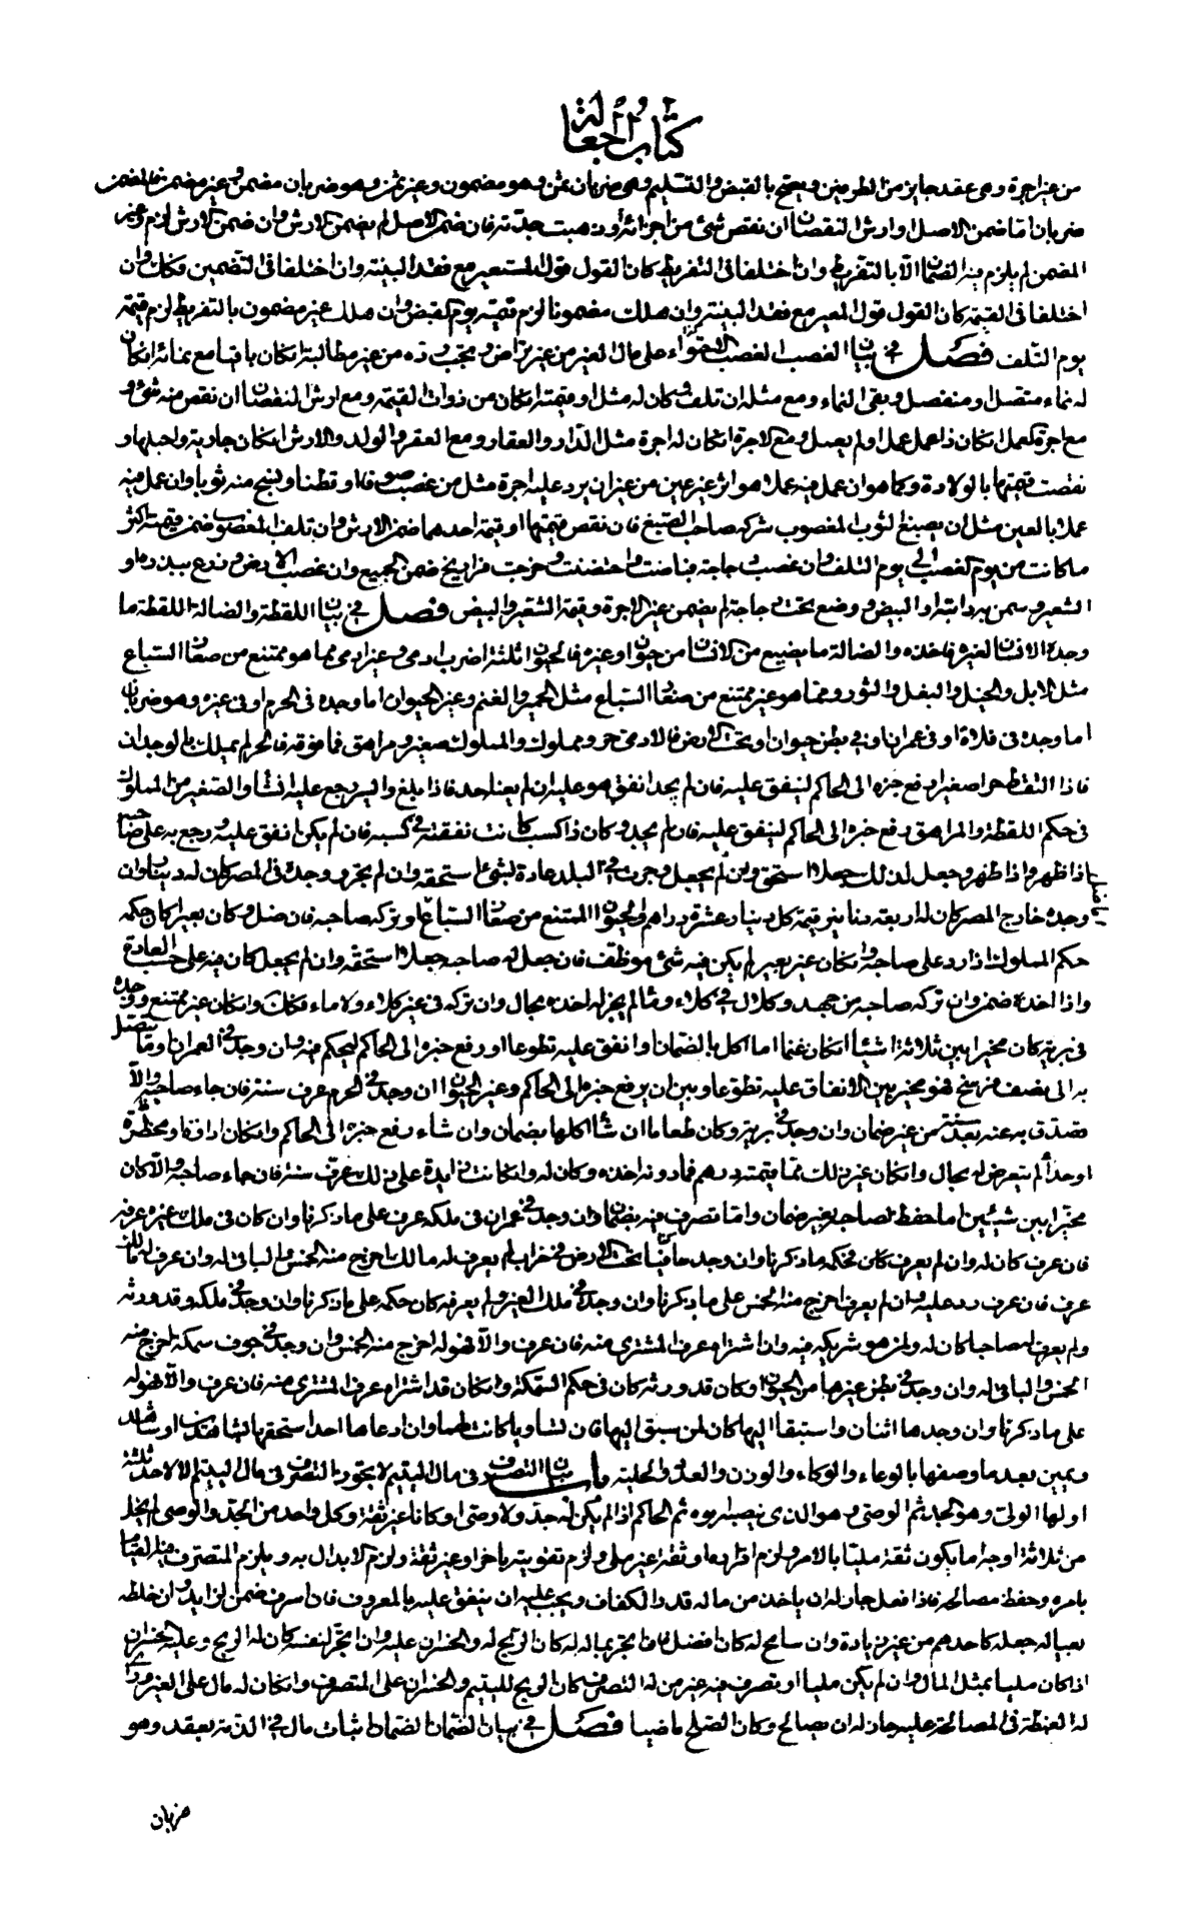 كتاب الجعالة
من غير اجرة وهي عقد جايز من الطرفين ويصح بالقبض والتسليم وهي ضربان ثمن وهو مضمون وغير ثمن وهو ضربان مضمن وغير مضمن فالمضمن
ضربان اما ضمن الاصل او ارش النقصان ان نقص شئ من اجزائه او ذهبت جدته فان ضمن الاصل لم يضمن الارش وان ضمن الارش لزم وغير
المضمن لم يلزم فيه الضمان الا بالتفريط وان اختلفا في التفريط كان القول قول المستعير مع فقد البينة وان اختلفا في التضمين فكذلك وان
اختلفا في القيمة كان القول قول المعير مع فقد البينة وان هلك مضمونا لزم قيمته يوم القبض وان هلك غير مضمون بالتفريط لزم قيمته
يوم التلف فصل في بيان الغصب الغصب الاحتواء على مال الغير من غير تراض ويجب رده من غير مطالبة ان كان باقيا مع نمائه ان كان
له نماء متصل او منفصل وبقى النماء ومع مثله ان تلف وكان له مثل او قيمته ان كان من ذوات القيمة ومع ارش النقصان ان نقص منه شئ و
مع اجرة العمل ان كان ذا عمل عمل او لم يعمل ومع الاجرة ان كان له اجرة مثل الدار والعقار ومع العقر والولد والارش ان كان جارية واحبلها و
نقصت قيمتها بالولادة وكما هو ان عمل فيه عملا هو اثر غير عين من غير ان يرد عليه اجرة مثل من غصب صوفا او قطنا ونسج منه ثوبا وان عمل فيه
عملا بالعين مثل ان يصبغ الثوب المغصوب شركه صاحب الصبغ فان نقص قيمتهما او قيمة احدهما ضمن الارش وان تلف المغصوب ضمن قيمته اكثر
ما كانت من يوم الغصب الى يوم التلف وان غصب دجاجة فباضت واحتضنت وخرجت فراريخ ضمن الجميع وان غصب الارض وزرع ببذره او
الشعير وسمن به دابته او البيض ووضع تحت دجاجة لم يضمن غير الاجرة وقيمة الشعير والبيض فصل في بيان اللقطة والضالة اللقطة ما
وجده الانسان لغيره فاخذه والضالة ما يضيع من الانسان من حيوان او غيره فالحيوان ثلثة اضرب ادمى وغير ادمى مما هو ممتنع من صغار السباع
مثل الابل والخيل والبغل والثور ومما هو غير ممتنع من صغار السباع مثل الحمير والغنم وغير الحيوان اما وجده في الحرم او في غيره وهو ضربان
اما وجده في فلاة او في عمران او في بطن حيوان او تحت الارض فالادمى حر ومملوك والمملوك صغير ومراهق فما فوقه فالحر لم يملك بالوجدان
فاذا التقط حرا صغيرا رفع خبره الى الحاكم لينفق عليه فان لم يجد انفق هو عليه ان لم يعنه احد فاذا بلغ وايسر رجع عليه ان شاء والصغير من المملوك
في حكم اللقطة والمراهق رفع خبره الى الحاكم لينفق عليه فان لم يجد وكان ذا كسب كانت نفقته في كسبه فان لم يكن انفق عليه ورجع به على صاحبه
اذا ظهر واذا ظهر وجعل لذلك جعلا استحق وان لم يجعل وجرت في البلد عادة لشئ استحقه وان لم تجر ووجده في المصر كان له دينار وان
وجده خارج المصر كان له اربعة دنانير قيمة كل دينار عشرة دراهم والحيوان الممتنع من صغار السباع او تركه صاحبه فان ضل وكان بعيرا كان حكمه
حكم المملوك اذا رد على صاحبه وان كان غير بعير لم يكن فيه شئ موظف فان جعل له صاحبه جعلا استحقه وان لم يجعل كان فيه على حسب العادة
واذا اخذه ضمن وان تركه صاحبه من جهد وكلال في كلاء وماء لم يجز له اخذه بحال وان تركه في غير كلاء ولا ماء فكذلك وان كان غير ممتنع ووجده
في برية كان مخيرا بين ثلاثة اشياء ان كان غنما اما اكل بالضمان او انفق عليه تطوعا او رفع خبره الى الحاكم ليحكم فيه وان وجد في العمران وما يتصل
به الى نصف فرسخ فهو مخير بين الانفاق عليه تطوعا وبين ان يرفع خبره الى الحاكم وغير الحيوان ان وجد في الحرم عرف سنة فان جاء صاحبه والا
تصدق به عنه بعد سنة من غير ضمان وان وجد في برية وكان طعاما ان شاء اكلها بضمان وان شاء رفع خبره الى الحاكم وان كان اداوة او مخصرة
او حذاء لم يتعرض له بحال وان كان غير ذلك مما قيمته درهم فما دونه اخذه وكان له وان كانت زايدة على ذلك عرف سنة فان جاء صاحبه والا كان
مخيرا بين شيئين اما حفظ لصاحبه بغير ضمان واما تصرف فيه بضمان وان وجد في عمران في ملكه عرف على ما ذكرنا وان كان في ملك غيره عرفه
فان عرف كان له وان لم يعرف كان حكمه ما ذكرنا وان وجد مالا تحت الارض في خراب لم يعرف له مالك اخرج منه الخمس والباقي له وان عرف له مالك
عرف فان عرف رد عليه وان لم يعرف اخرج منه الخمس على ما ذكرنا وان وجد في ملك الغير ولم يعرفه كان حكمه على ما ذكرنا وان وجد في ملكه وقد ورثه
ولم يعرف له صاحبا كان له ولمن هو شريكه فيه وان اشتراه عرف المشترى منه فان عرف والا فهو له اخرج منه الخمس وان وجد في جوف سمكة اخرج منه
الخمس والباقي له وان وجد في بطن غيرها من الحيوان وكان قد ورثه كان في حكم السمكة وان كان قد اشتراه عرف المشترى منه فان عرف والا فهو له
على ما ذكرنا وان وجدها اثنان واستبقا اليها كان لمن سبق اليها فان تساويا كانت لهما وان ادعاها احد استحقها بشاهدين او شاهد
ويمين بعد ما وصفها بالوعاء والوكاء والوزن والعدد والحلية باب بيان التصرف في مال اليتيم لا يجوز التصرف في مال اليتيم الا لاحد ثلثة
اولها الولي وهو الجد ثم الوصى وهو الذي نصبه ابوه ثم الحاكم اذا لم يكن له جد ولا وصى او كانا غير ثقة وكل واحد من الجد والوصى لم يخل
من ثلاثة اوجه اما يكون ثقة مليا بالامر ولزم اقراره او ثقة غير ملي ولزم تقويته باخر او غير ثقة ولزم الابدال به ويلزم المتصرف فيه القيام
بامره وحفظ مصالحه فاذا فعل جاز له ان ياخذ من ماله قدر الكفاف ويجب عليه ان ينفق عليه بالمعروف فان اسرف ضمن الزايد وان خلطه
بعياله جعله كاحدهم من غير زيادة وان سامح له كان افضل فان اتجر بماله له كان الربح له والخسران عليه وان اتجر لنفسه كان له الربح وعليه الخسران
اذا كان مليا بمثل المال وان لم يكن مليا او تصرف فيه غير من له التصرف كان الربح لليتيم والخسران على المتصرف وان كان له مال على الغير وراى
له الغبطة في المصالحة عليه جاز له ان يصالح وكان الصلح ماضيا فصل في بيان الضمان الضمان اثبات مال في الذمة بعقد وهو
ضربان